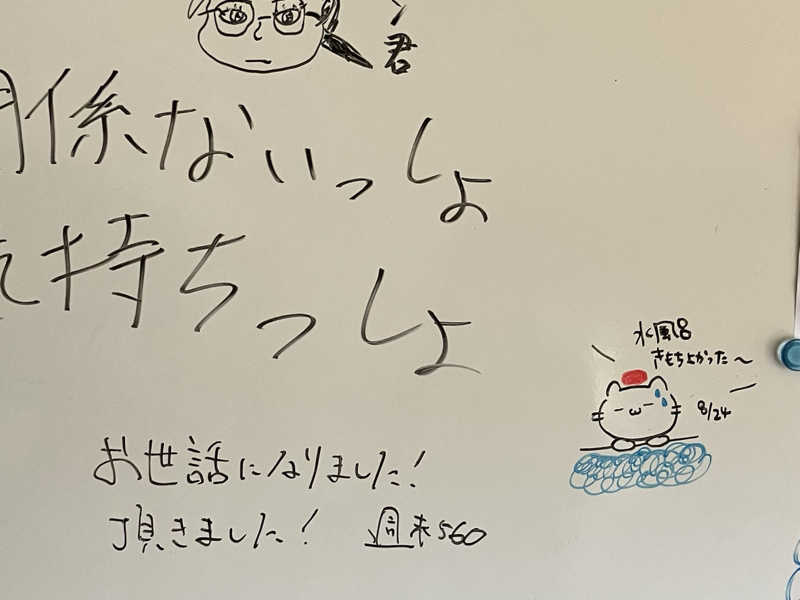 君
係ないっしょ
持ちっしょ
水風呂
きもちよかった〜
8/24
お世話になりました!
頂きました! 週末560